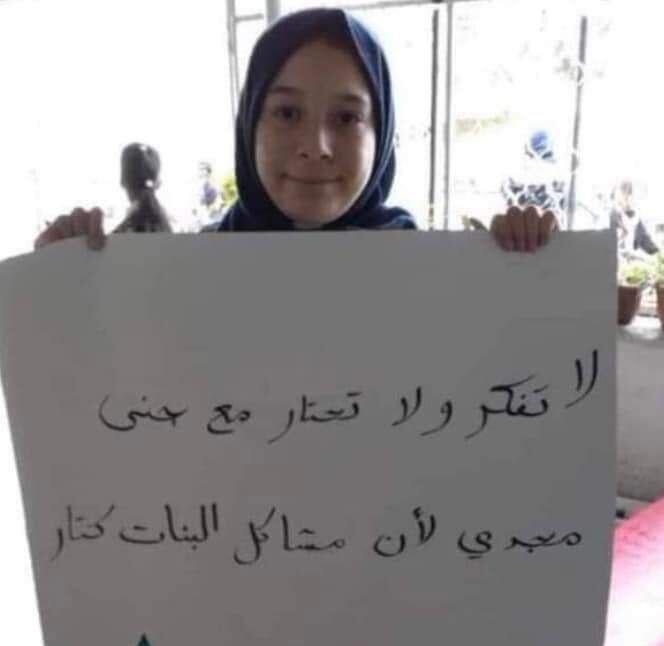 لا تفكر ولا تحتار مع جنى
مجدي لأن مشاكل البنات كتار